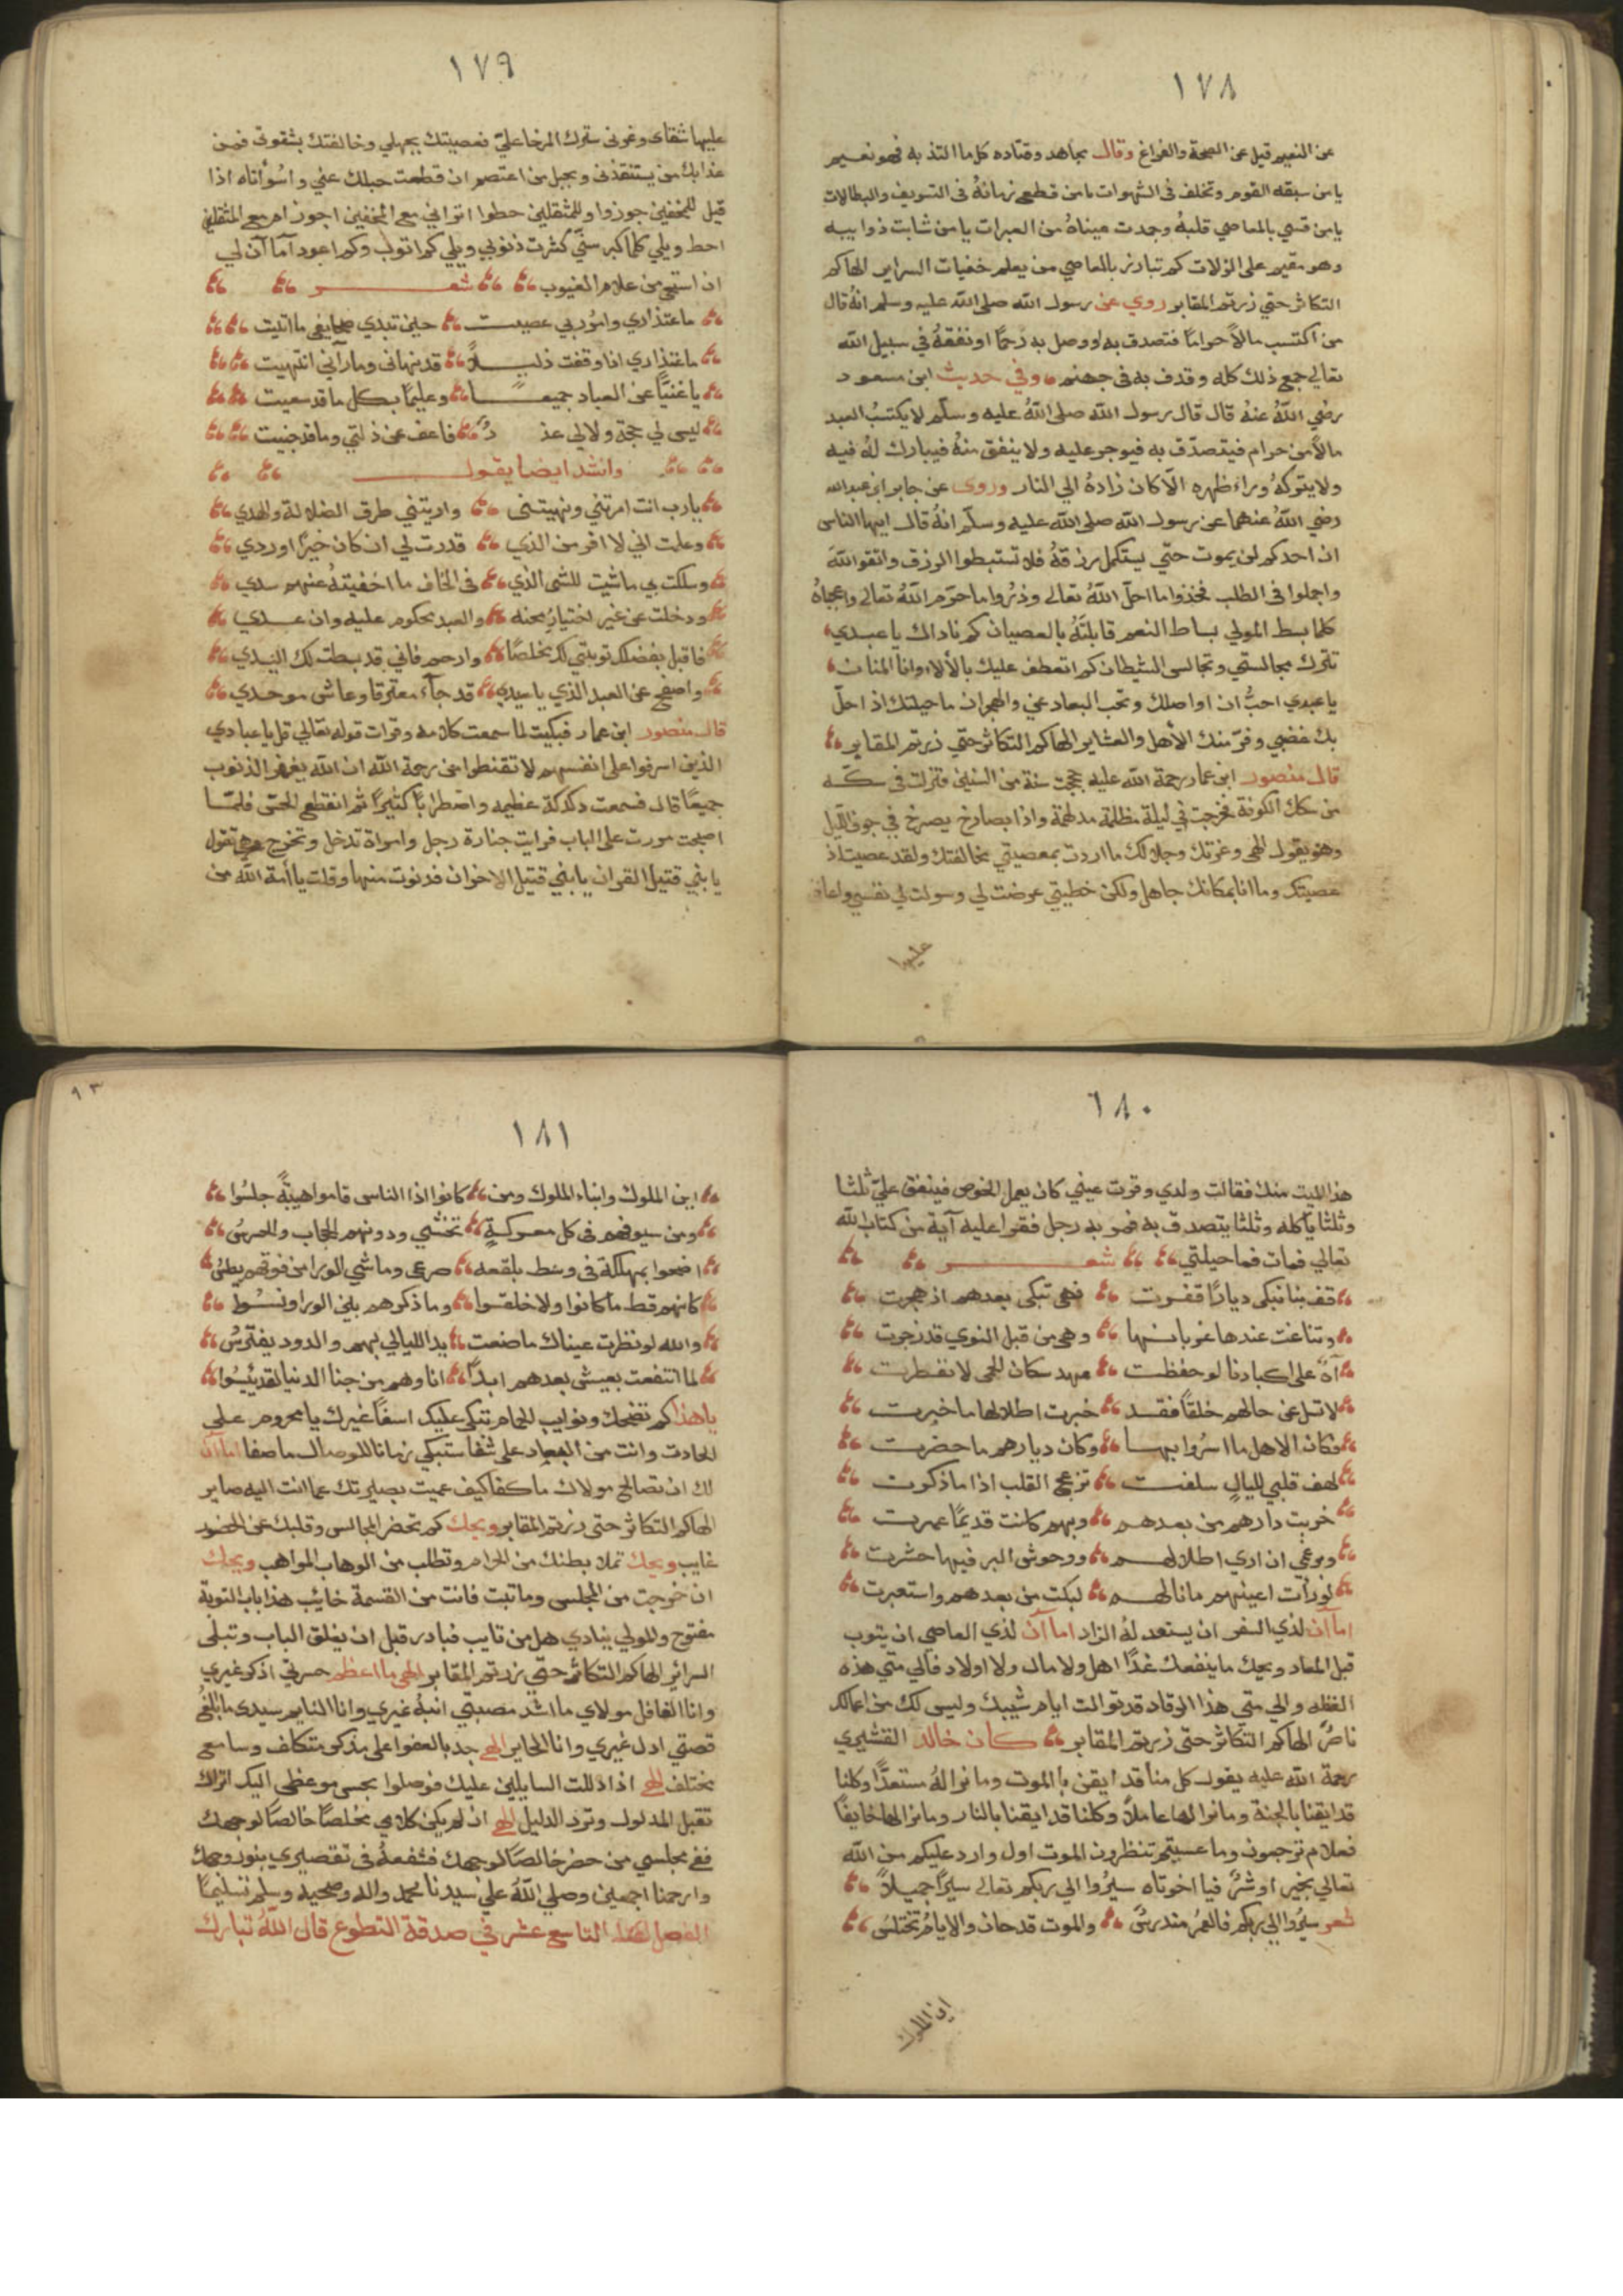 ١٧٨
عن النعيم قيل عن الصحة والفراغ وقال مجاهد وقتاده كل ما التذ به فهو نعيم
يا من سبقه القوم وتخلف في الشهوات يا من قطع زمانهُ في التسويف والبطالات
يا من قسي بالمعاصي قلبهُ وجمدت عيناهُ من العبرات يا من شابت ذوايبه
وهو مقيم على الزلات كم تبارز بالمعاصي من يعلم خفيات السراير الهاكم
التكاثر حتي زرتم المقابر روي عن رسول الله صلى الله عليه وسلم انهُ قال
من اكتسب مالاً حرامًا فتصدق به او وصل به رحمًا او نفقهُ في سبيل الله
تعالي جمع ذلك كله وقدف به في جهنم وفي حديث ابن مسعود
رضي اللهُ عنهُ قال قال رسول الله صلى اللهُ عليه وسلّم لا يكتسبُ العبد
مالاً من حرام فيتصدّق به فيوجر عليه ولا ينفق منهُ فيبارك لهُ فيه
ولا يتركهُ وراء ظهره الّا كان زادهُ الي النار وروى عن جابر ابن عبدالله
رضي اللهُ عنهما عن رسول الله صلى الله عليه وسلّم انهُ قال ايها الناس
ان احدكم لن يموت حتّي يستكمل رزقهُ فلا تستبطوا الرزق واتقو اللهَ
واجملوا في الطلب فخذوا ما احلّ اللهُ تعالي وذرُوا ما حرّم اللهُ تعالي واعجباهُ
كلما بسط المولي بساط النعم قابلتَهُ بالعصيان كم ناداك يا عبدي
تترك مجالستي وتجالس الشيطان كم اتعطف عليك بالآلاء وانا المنان
يا عبدي احبُّ ان اواصلك وتحب البعاد عني والهجران ما حيلتك اذ احلّ
بك غضبي وفرّ منك الأهل والعشاير الهاكم التكاثر حتي زرتم المقابر
قال منصور ابن عمار رحمة الله عليه حججت سنة من السنين فنزلت في سكّه
من سكك الكوفة فخرجت في ليلة مظلمة مدلهمة واذا بصارخ يصرخ في جوف الليل
وهو يقول الهي وعزتك وجلالك ما اردت بمعصيتي مخالفتك ولقد عصيت اذ
عصيتك وما انا بمكانك جاهل ولكن خطيتي عرضت لي وسولت لي نفسي واعانى
عليها
١٧٩
عليها شقاى وغرنى سترك المرخا عليّ فعصيتك بجهلي وخالفتك بشقوتى فمن
عذابك من يستنقذنى وبحبل من اعتصم ان قطعت حبلك عني واسُوأتاه اذا
قيل للمخفين جوزوا وللمثقلين حطوا اتراني مع المخفين اجوز ام مع المثقلين
احط ويلي كلما كبر سنّي كثرت ذنوبي ويلي كم اتوب وكم اعود اما آن لي
ان استحي من علام الغيوب شعـــر
ما عتذاري وامُر بي عصيت حين تبدي صحايفى ما اتيت
ما عتذاري اذا وقفت ذليـلاً قد نهانى وما رآني انتهيت
يا غنيًّا عن العباد جميعـــا وعليمًا بكل ما قد سعيت
ليس لي حجة ولا لي عذ رُ فاعف عن ذلتي وما قد جنيت
وانشد ايضا يقول
يا رب انت امرتني ونهيتنى واريتني طرق الضلالة والهدي
وعلمت اني لا افر من الذي قدرت لي ان كان خيرًا او ردي
وسلكت بي ما شيت للشى الذي في الخاف ما اخفيتهُ عنهم سدي
ودخلت عن غير اختيارٍ محنه والعبد محكوم عليه وان عـدي
فاقبل بفضلك توبتي لك مخلصًا وارحم فاني قد بسطت لك اليـدي
واصفح عن العبد الذي يا سيدي قد جآء معترفا وعاش موحدي
قال منصور ابن عمار فبكيت لما سمعت كلامه وقرات قوله تعالي قل يا عبادي
الذين اسرفوا علي انفسهم لا تقنطوا من رحمة الله ان الله يغفر الذنوب
جميعًا قال فسمعت دكدكة عظيمه واضطرابًا كثيرًا ثم انقطع الحسّ فلمّـا
اصبحت مررت على الباب فرايت جنازة رجل وامراة تدخل وتخرج وهي تقول
يا بني قتيل القران يا بني قتيل الاحزان فدنوت منها وقلت يا أمة الله من
١٨٠
هذا الميت منك فقالت ولدي وقرت عيني كان يعمل الخوص فينفق عليّ ثلثا
وثلثا ياكله وثلثا يتصدق به فمر به رجل فقرا عليه آية من كتاب الله
تعالي فمات فما حيلتي شعـــر
قف بنا نبكى ديارًا قفـرت فهى تبكى بعدهم اذ هجرت
وتناعت عندها غربانـها وهى من قبل النوي قد زجرت
آهً على اكبادنا لو حفظت عهد سكان الحمى لانفطرت
لا تسل عن حالهم خلقًا فقـد خبرت اطلالها ما خبرت
فكان الاهل ما اسرُوا بهـا وكان ديارهم ما حضرت
لهف قلبي لليالٍ سلفت تزعج القلب اذا ما ذكرت
خربت دارهم من بعدهـم وبهم كانت قديمًا عمرت
وبرغمي ان اري اطلالهـم ووحوش البر فيها حشرت
لو رأت اعينهم ما نالهـم لبكت من بعدهم واستعبرت
اما آن لذي السفر ان يستعد لهُ الزاد اما آن لذي العاصي ان يتوب
قبل المعاد ويحك ما ينفعك غدًا اهل ولا مال ولا اولاد فالي متي هذه
الغفله والي متي هذا الرقاد قد توالت ايام شيبك وليس لك من اعمالك
ناصرٌ الهاكم التكاثر حتّى زرتم المقابر كان خالد القشيري
رحمة الله عليه يقول كل منا قد ايقن بالموت وما نرا لهُ مستعدًّا وكلنا
قد ايقنا بالجنة وما نرا لها عاملاً وكلنا قد ايقنا بالنار وما نرا لها خايفًا
فعلام ترجعون وما عسيتم تنظرون الموت اول وارد عليكم من الله
تعالي بخير او شرٌ فيا اخوتاه سيرُوا الي ربكم تعالي سيرًا جميـلاً
شعر سيرُوا الي ربكم فالعمرُ مندرسٌ والموت قد حان والايامُ تختلسُ
اين الملوك
٩٣
١٨١
اين الملوك وابناء الملوك ومن كانوا اذا الناس قاموا هيبةً جلسُوا
ومن سيوفهم في كل معركـةٍ تخشي ودونهم الحجاب والحرسُ
اضحوا بمهلكة في وسط بلقعه صرعى وماشي الورا من فوقهم يطسُ
كانهم قط ما كانوا ولا خلقـوا وما ذكرهم بين الورا ونسُـوا
والله لو نظرت عيناك ما صنعت يد الليالي بهم والدود يفترسُ
لما انتفعت بعيش بعدهم ابـدًا انا وهم من جنا الدنيا لقد يئسُوا
يا هذا كم تضحك ونوايب الحمام تبكى عليك اسفًا غيرك يا محروم علي
الحادث وانت من البعاد على شفا ستبكي زمانا للوصال ما صفا اما آن
لك ان تصالح مولاك ما كفا كيف عميت بصيرتك عما انت اليه صاير
الهاكم التكاثر حتى زرتم المقابر ويحك كم تحضر المجالس وقلبك عن الحضور
غايب ويحك تملا بطنك من الحرام وتطلب من الوهاب المواهب ويحك
ان خرجت من المجلس وما تبت فانت من القسمة خائب هذا باب التوبة
مفتوح والمولي ينادي هل من تايب فبادر قبل ان يغلق الباب وتبلى
السرائر الهاكم التكاثر حتّي زرتم المقابر الهى ما اعظم حسرتي اذكر غيري
وانا الغافل مولاي ما اشد مصيبتي انبهُ غيري وانا النايم سيدى ما ابلغُ
قصتي ادل غيري وانا الحاير الهي جد بالعفو على مذكر متكلف وسامع
مختلف الهي اذا دللت السايلين عليك فوصلوا بحسن موعظي اليك اتراك
تقبل المدلول وترد الدليل الهي ان لم يكن كلامي مخلصًا خالصًا لوجهك
ففي مجلسي من حضر خالصًا لوجهك فشفعهُ في تقصيري بنور وجهك
وارحمنا اجمعين وصلي اللهُ علي سيدنا محمد واله وصحبه وسلم تسليمًا
الفصل التاسع عشر في صدقة التطوع قال اللهُ تبارك